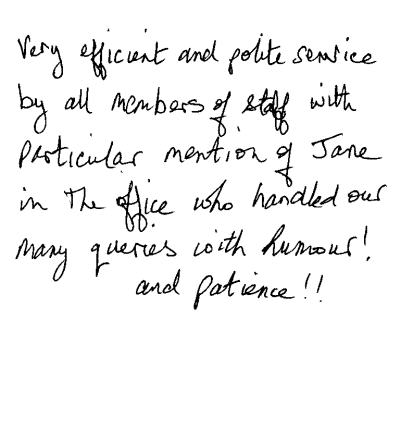 Very efficient and polite service
by all members of staff with
particular mention of Jane
in the office who handled our
many queries with humour!
and patience!!